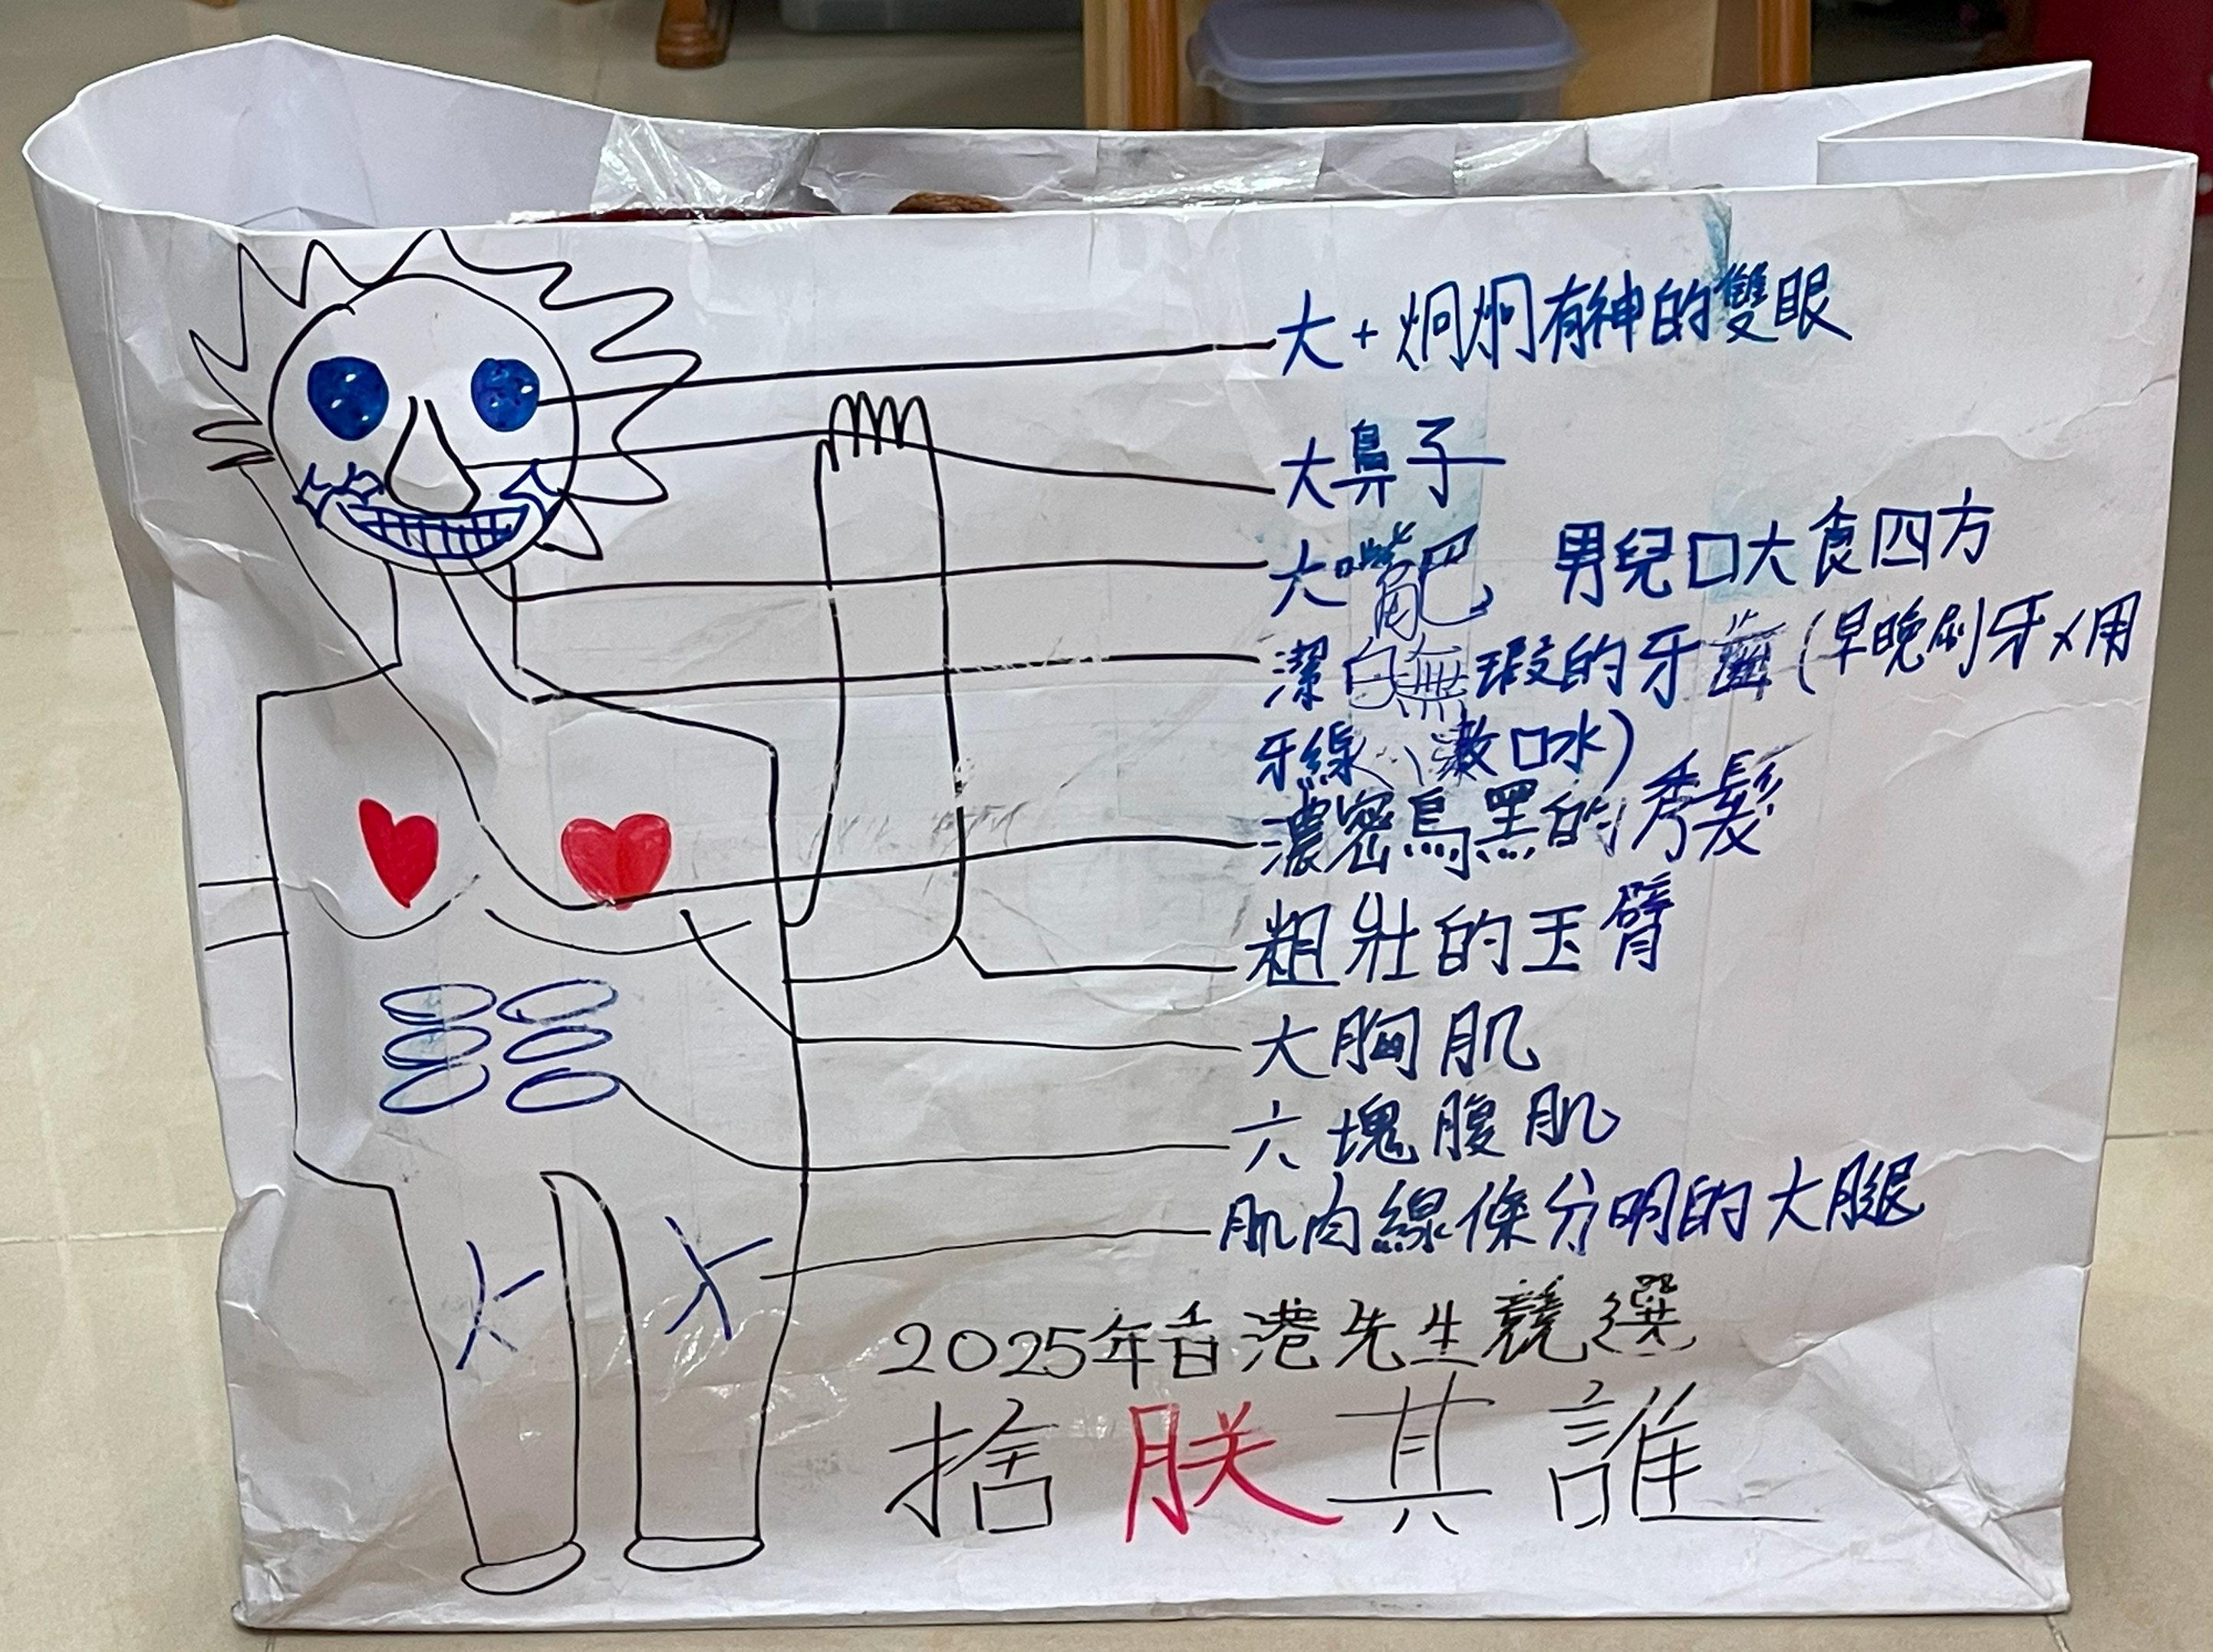 大+炯炯有神的雙眼
大鼻子
大嘴巴, 男兒口大食四方
潔白無瑕的牙齒(早晚刷牙×用
牙線、漱口水)
濃密烏黑的秀髮
粗壯的玉臂
大胸肌
六塊腹肌
肌肉線條分明的大腿
2025年香港先生競選
捨朕其誰